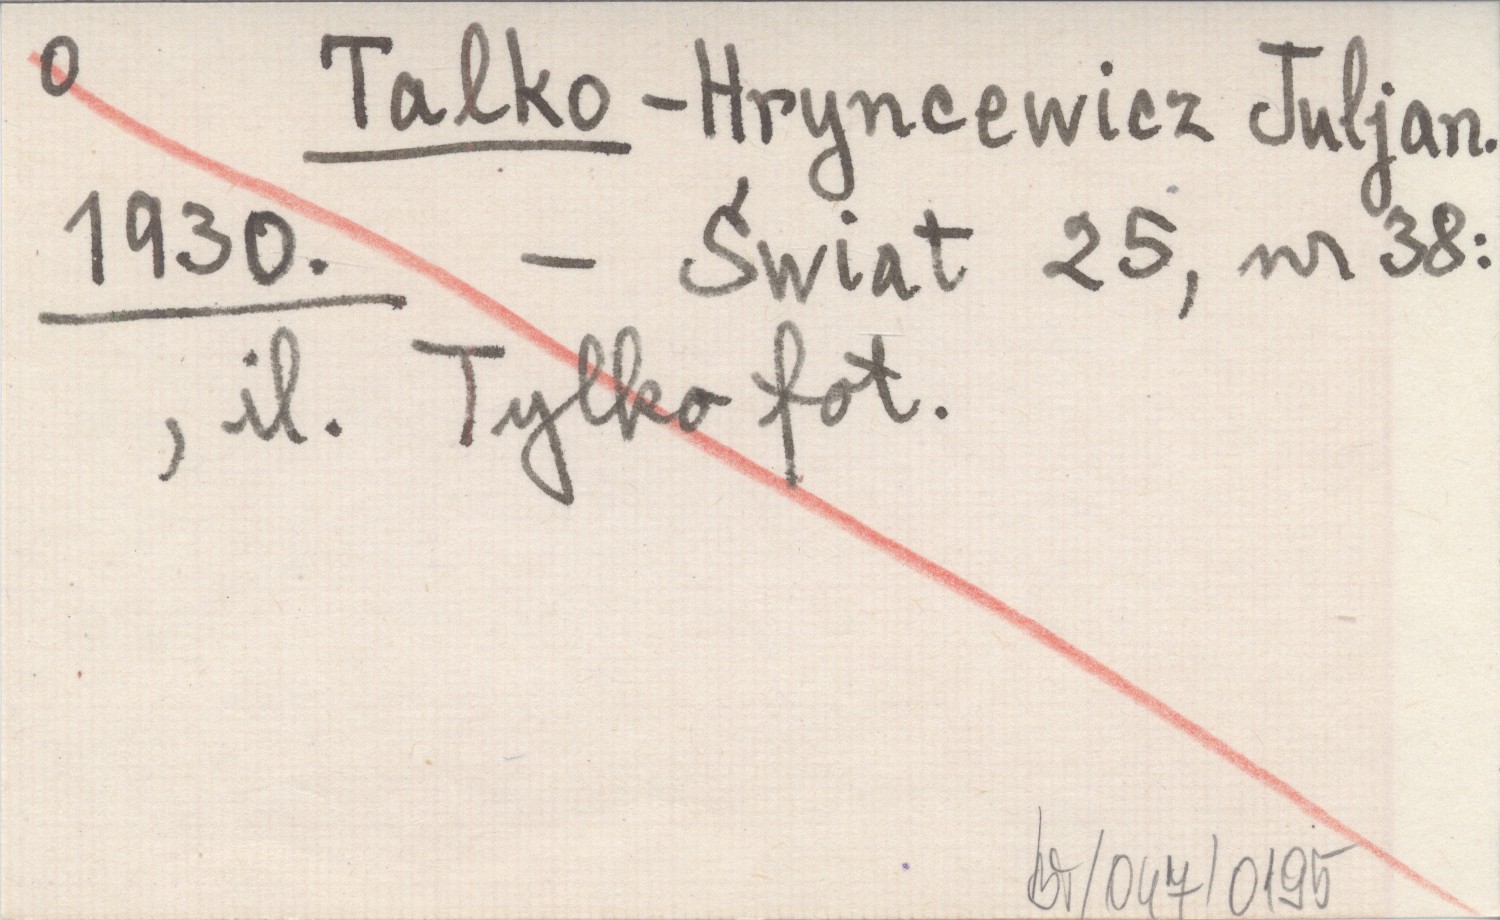 0 Talko-Hryncewicz Juljan.
1930. - Świat 25, nr 38:
, il. Tylko fot.
/047/0195